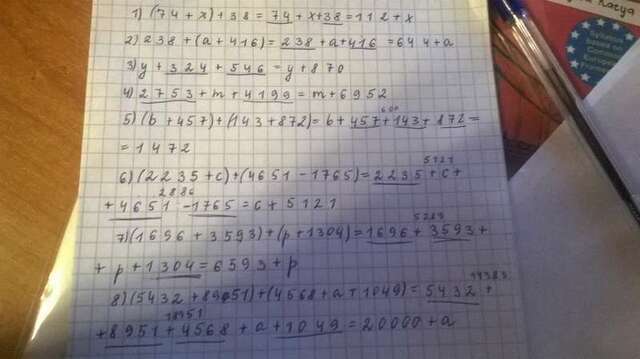 Katya
Syllabus
1) (74 + x) + 38 = 74 + x + 38 = 112 + x
2) 238 + (a + 416) = 238 + a + 416 = 644 + a
3) y + 324 + 546 = y + 870
4) 2753 + m + 4199 = m + 6952
600
5) (b + 457) + (143 + 872) = b + 457 + 143 + 872 =
= 1472
5121
6) (2235 + c) + (4651 - 1765) = 2235 + c +
2886
+ 4651 - 1765 = c + 5121
5289
7) (1696 + 3593) + (p + 1304) = 1696 + 3593 +
+ p + 1304 = 6593 + p
14383
8) (5432 + 8951) + (4568 + a + 1049) = 5432 +
18951
+ 8951 + 4568 + a + 1049 = 20000 + a